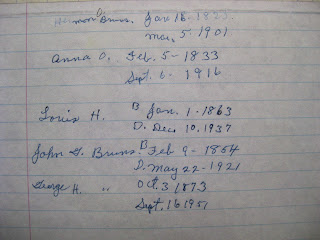 Herman D. Bruns. Jan 18 - 1823.
May, 5 1901
Anna O. Feb. 5 - 1833
Sept. 6 - 1916
Louis H. B Jan. 1 - 1863
D. Dec 10, 1937
John G. Bruns B Feb 9 - 1864
D. May 22 - 1921
George H. " Oct. 3 1873
Sept. 16 1951